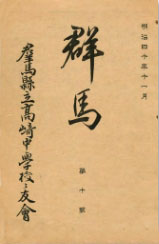 明治四十年十一月
群馬
第十號
羣馬縣立高崎中學校々友會